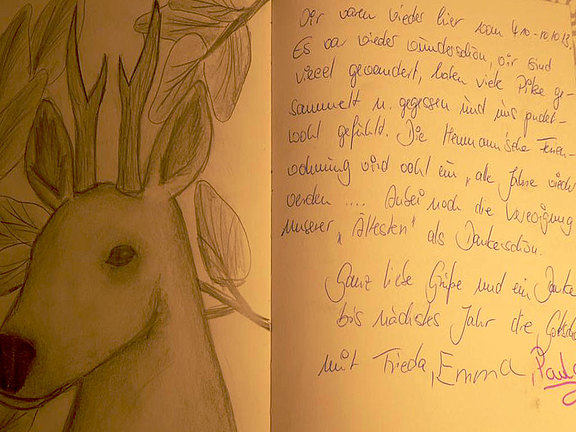 Wir waren wieder hier vom 4.10-10.10.13,
Es war wieder wunderschön, wir sind
viel gewandert, haben viele Pilze ge-
sammelt u. gegessen und uns pudel-
wohl gefühlt. Die Hermann'sche Ferien-
wohnung wird wohl ein „alle Jahre wieder
werden .... Anbei noch die Verewigung
unserer „Ältesten" als Dankeschön.
Ganz liebe Grüße und ein Danke
bis nächstes Jahr die
mit Frieda, Emma, Paula